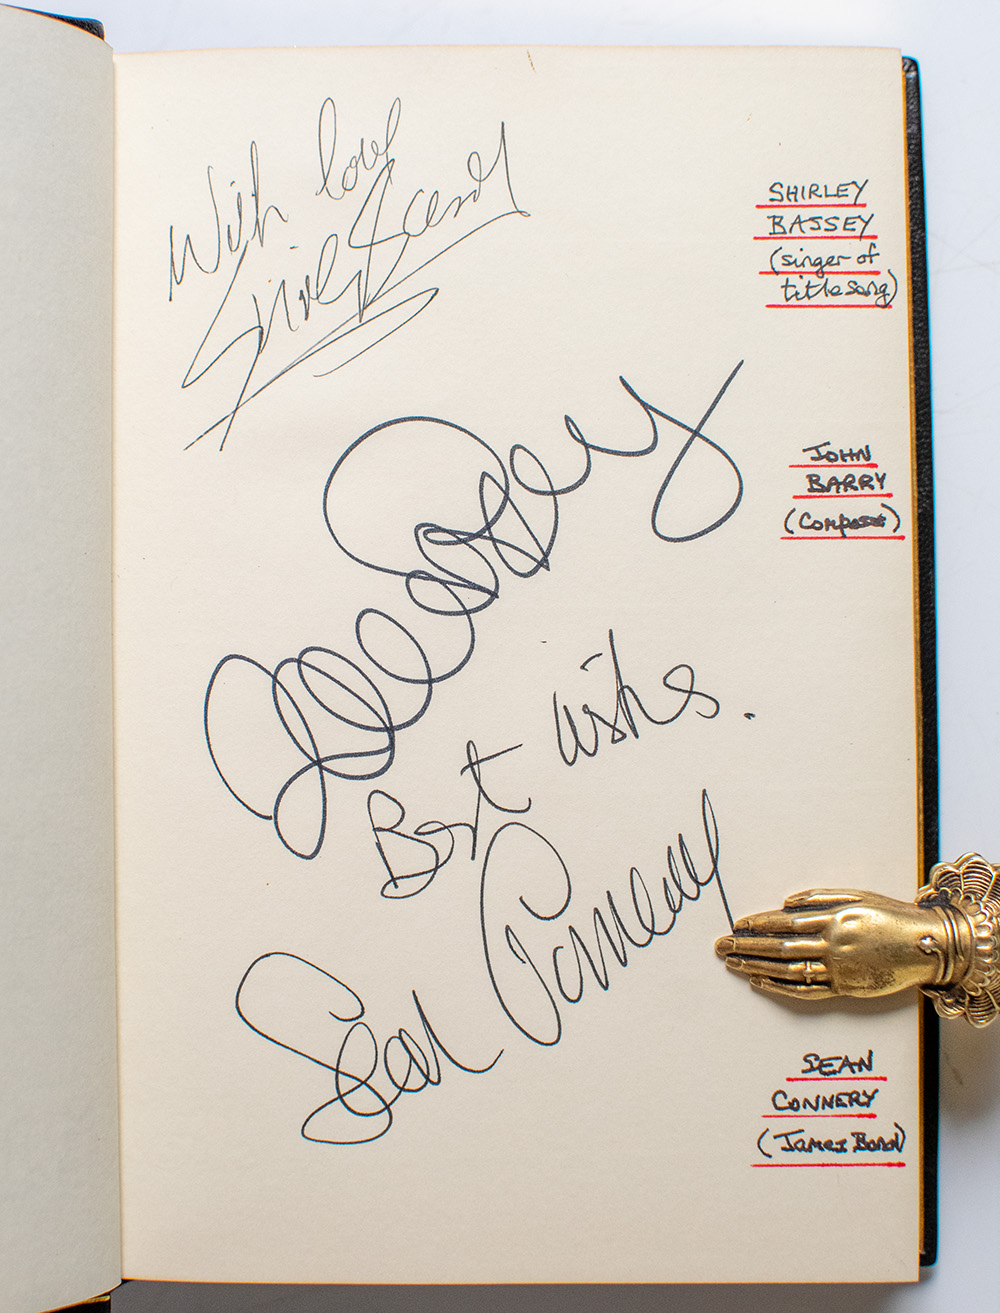 With love
Shirley Bassey
SHIRLEY
BASSEY
(singer of
title song)
JOHN
BARRY
(Composer)
Best wishes.
Sean Connery
SEAN
CONNERY
(James Bond)